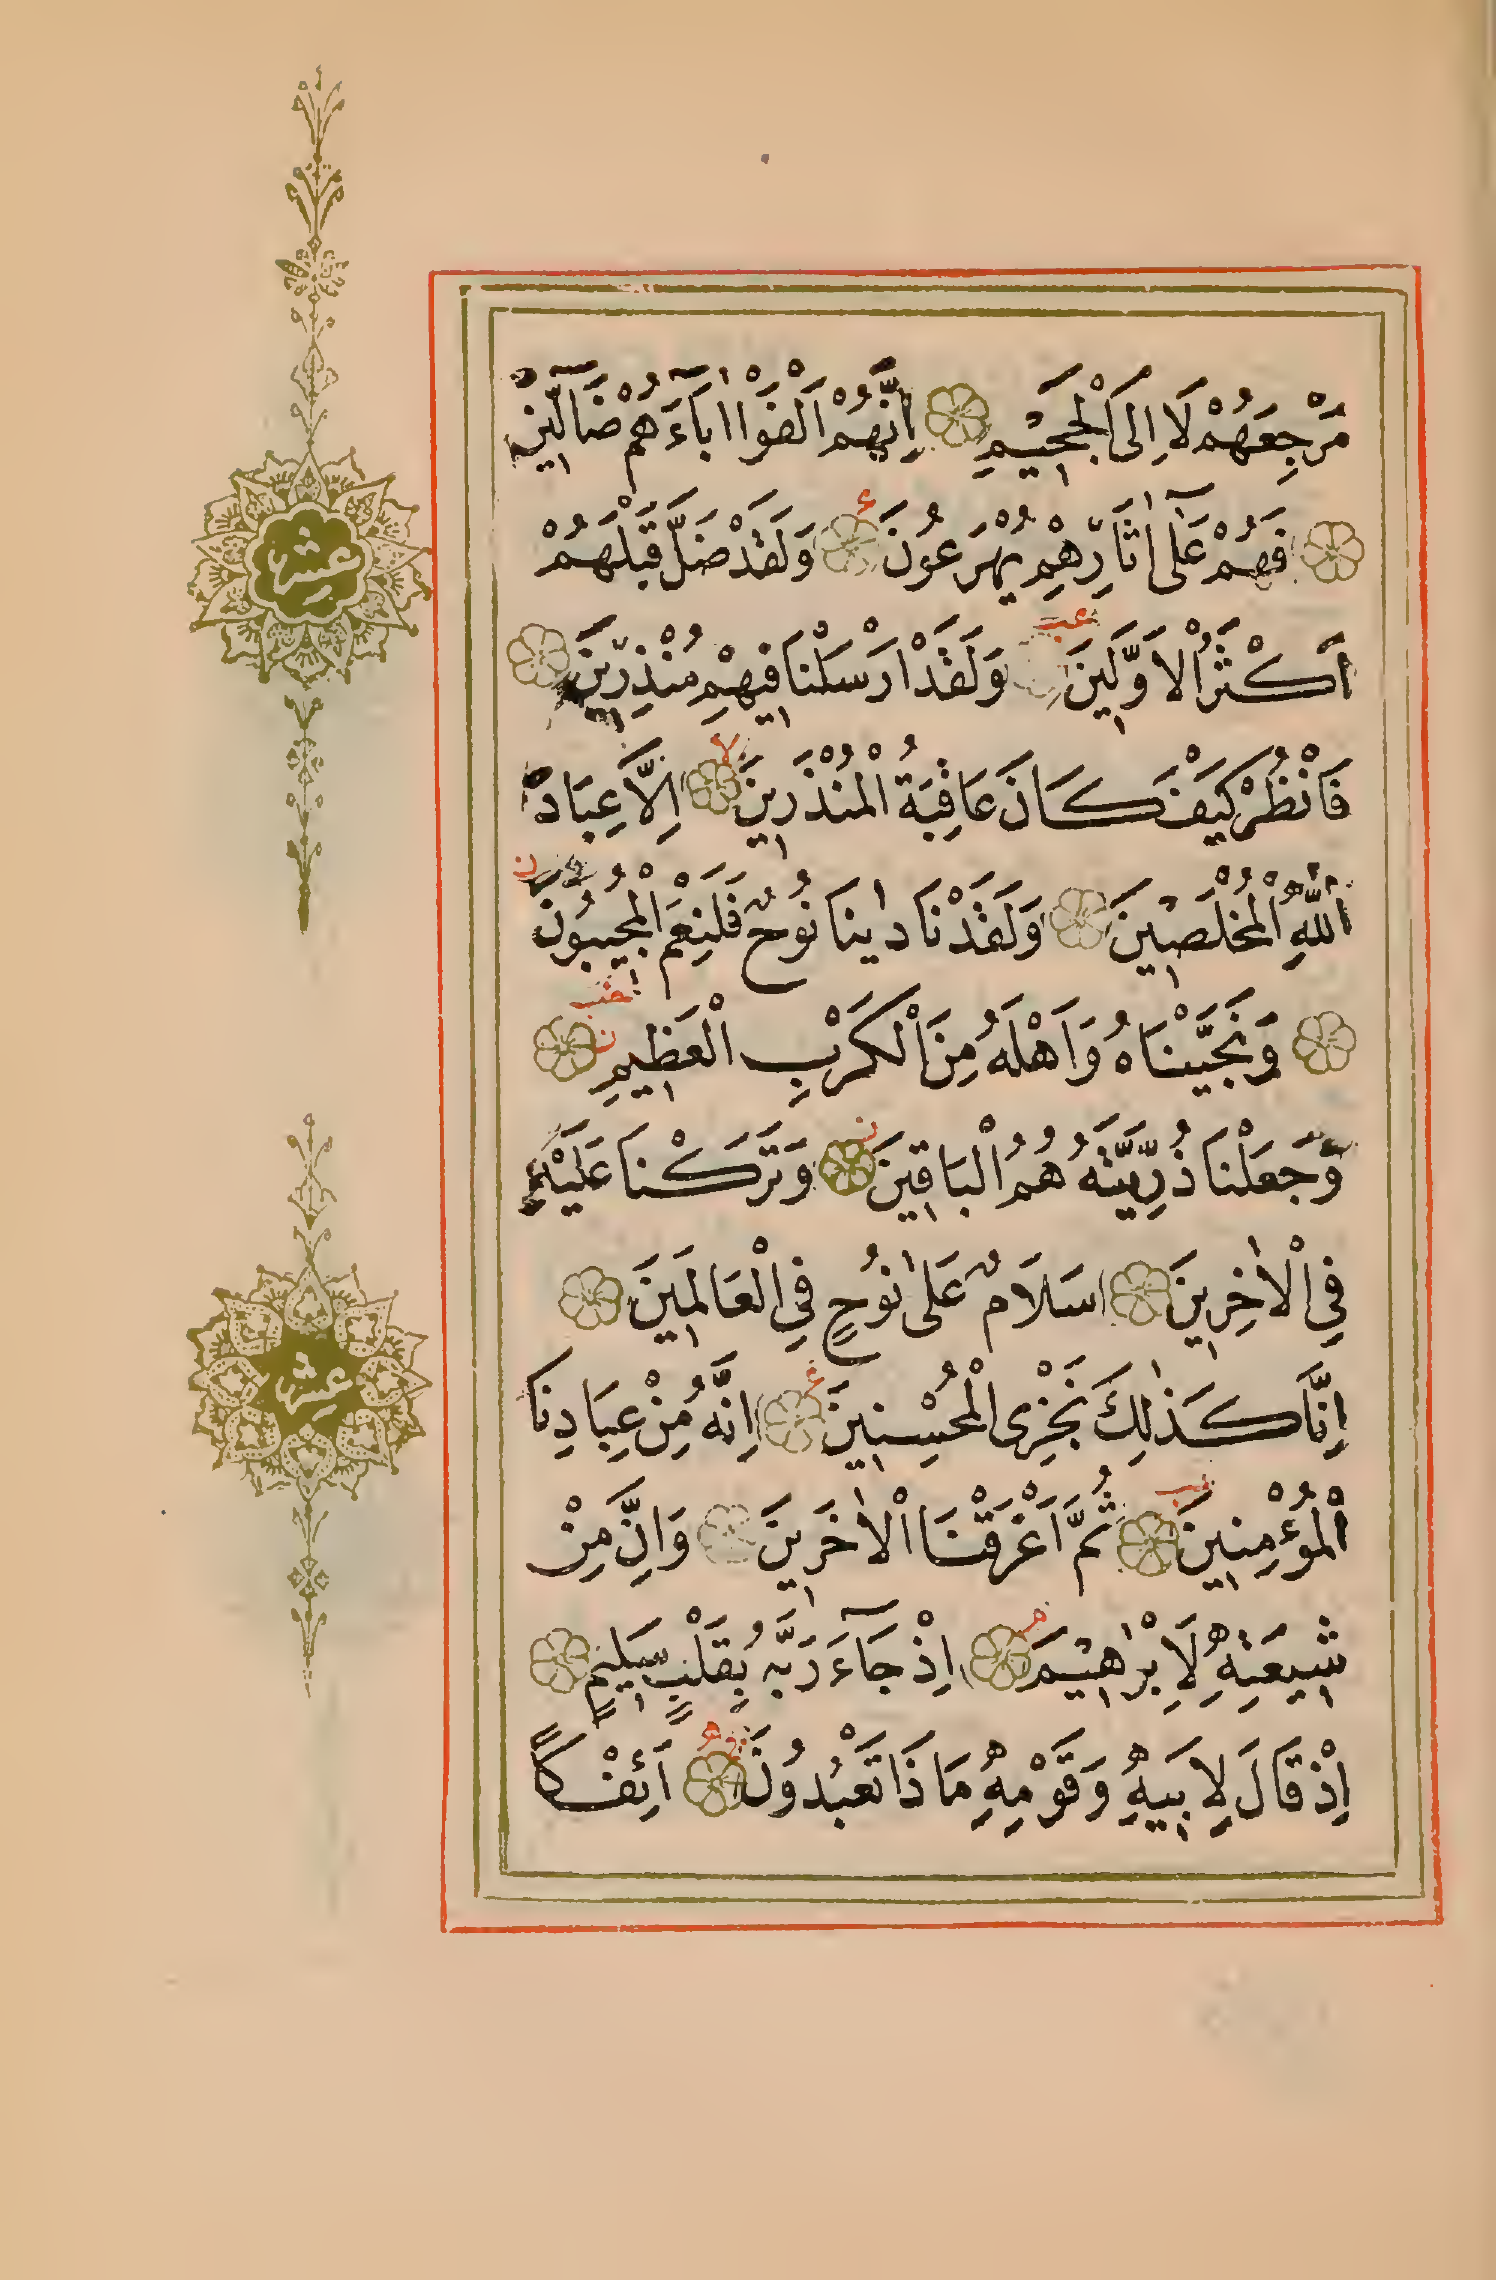 مَرْجِعَهُمْ لَاِالَى الْجَحِيمِ اِنَّهُمْ اَلْفَوْا اٰبَآءَهُمْ ضَآلِّينَ
فَهُمْ عَلٰٓى اٰثَارِهِمْ يُهْرَعُونَ وَلَقَدْ ضَلَّ قَبْلَهُمْ
اَكْثَرُ الْاَوَّلِينَ وَلَقَدْ اَرْسَلْنَا فِيهِمْ مُنْذِرِينَ
فَانْظُرْ كَيْفَ كَانَ عَاقِبَةُ الْمُنْذَرِينَ اِلَّا عِبَادَ
اللّٰهِ الْمُخْلَصِينَ وَلَقَدْ نَادٰينَا نُوحٌ فَلَنِعْمَ الْمُجِيبُونَ
وَنَجَّيْنَاهُ وَاَهْلَهُ مِنَ الْكَرْبِ الْعَظِيمِ
وَجَعَلْنَا ذُرِّيَّتَهُ هُمُ الْبَاقِينَ وَتَرَكْنَا عَلَيْهِ
فِي الْاٰخِرِينَ سَلَامٌ عَلٰى نُوحٍ فِي الْعَالَمِينَ
اِنَّا كَذٰلِكَ نَجْزِى الْمُحْسِنِينَ اِنَّهُ مِنْ عِبَادِنَا
الْمُؤْمِنِينَ ثُمَّ اَغْرَقْنَا الْاٰخَرِينَ وَاِنَّ مِنْ
شِيعَتِهِ لَاِبْرٰهِيمَ اِذْ جَآءَ رَبَّهُ بِقَلْبٍ سَلِيمٍ
اِذْ قَالَ لِاَبِيهِ وَقَوْمِهِ مَاذَا تَعْبُدُونَ اَئِفْكًا
عشر
عشر